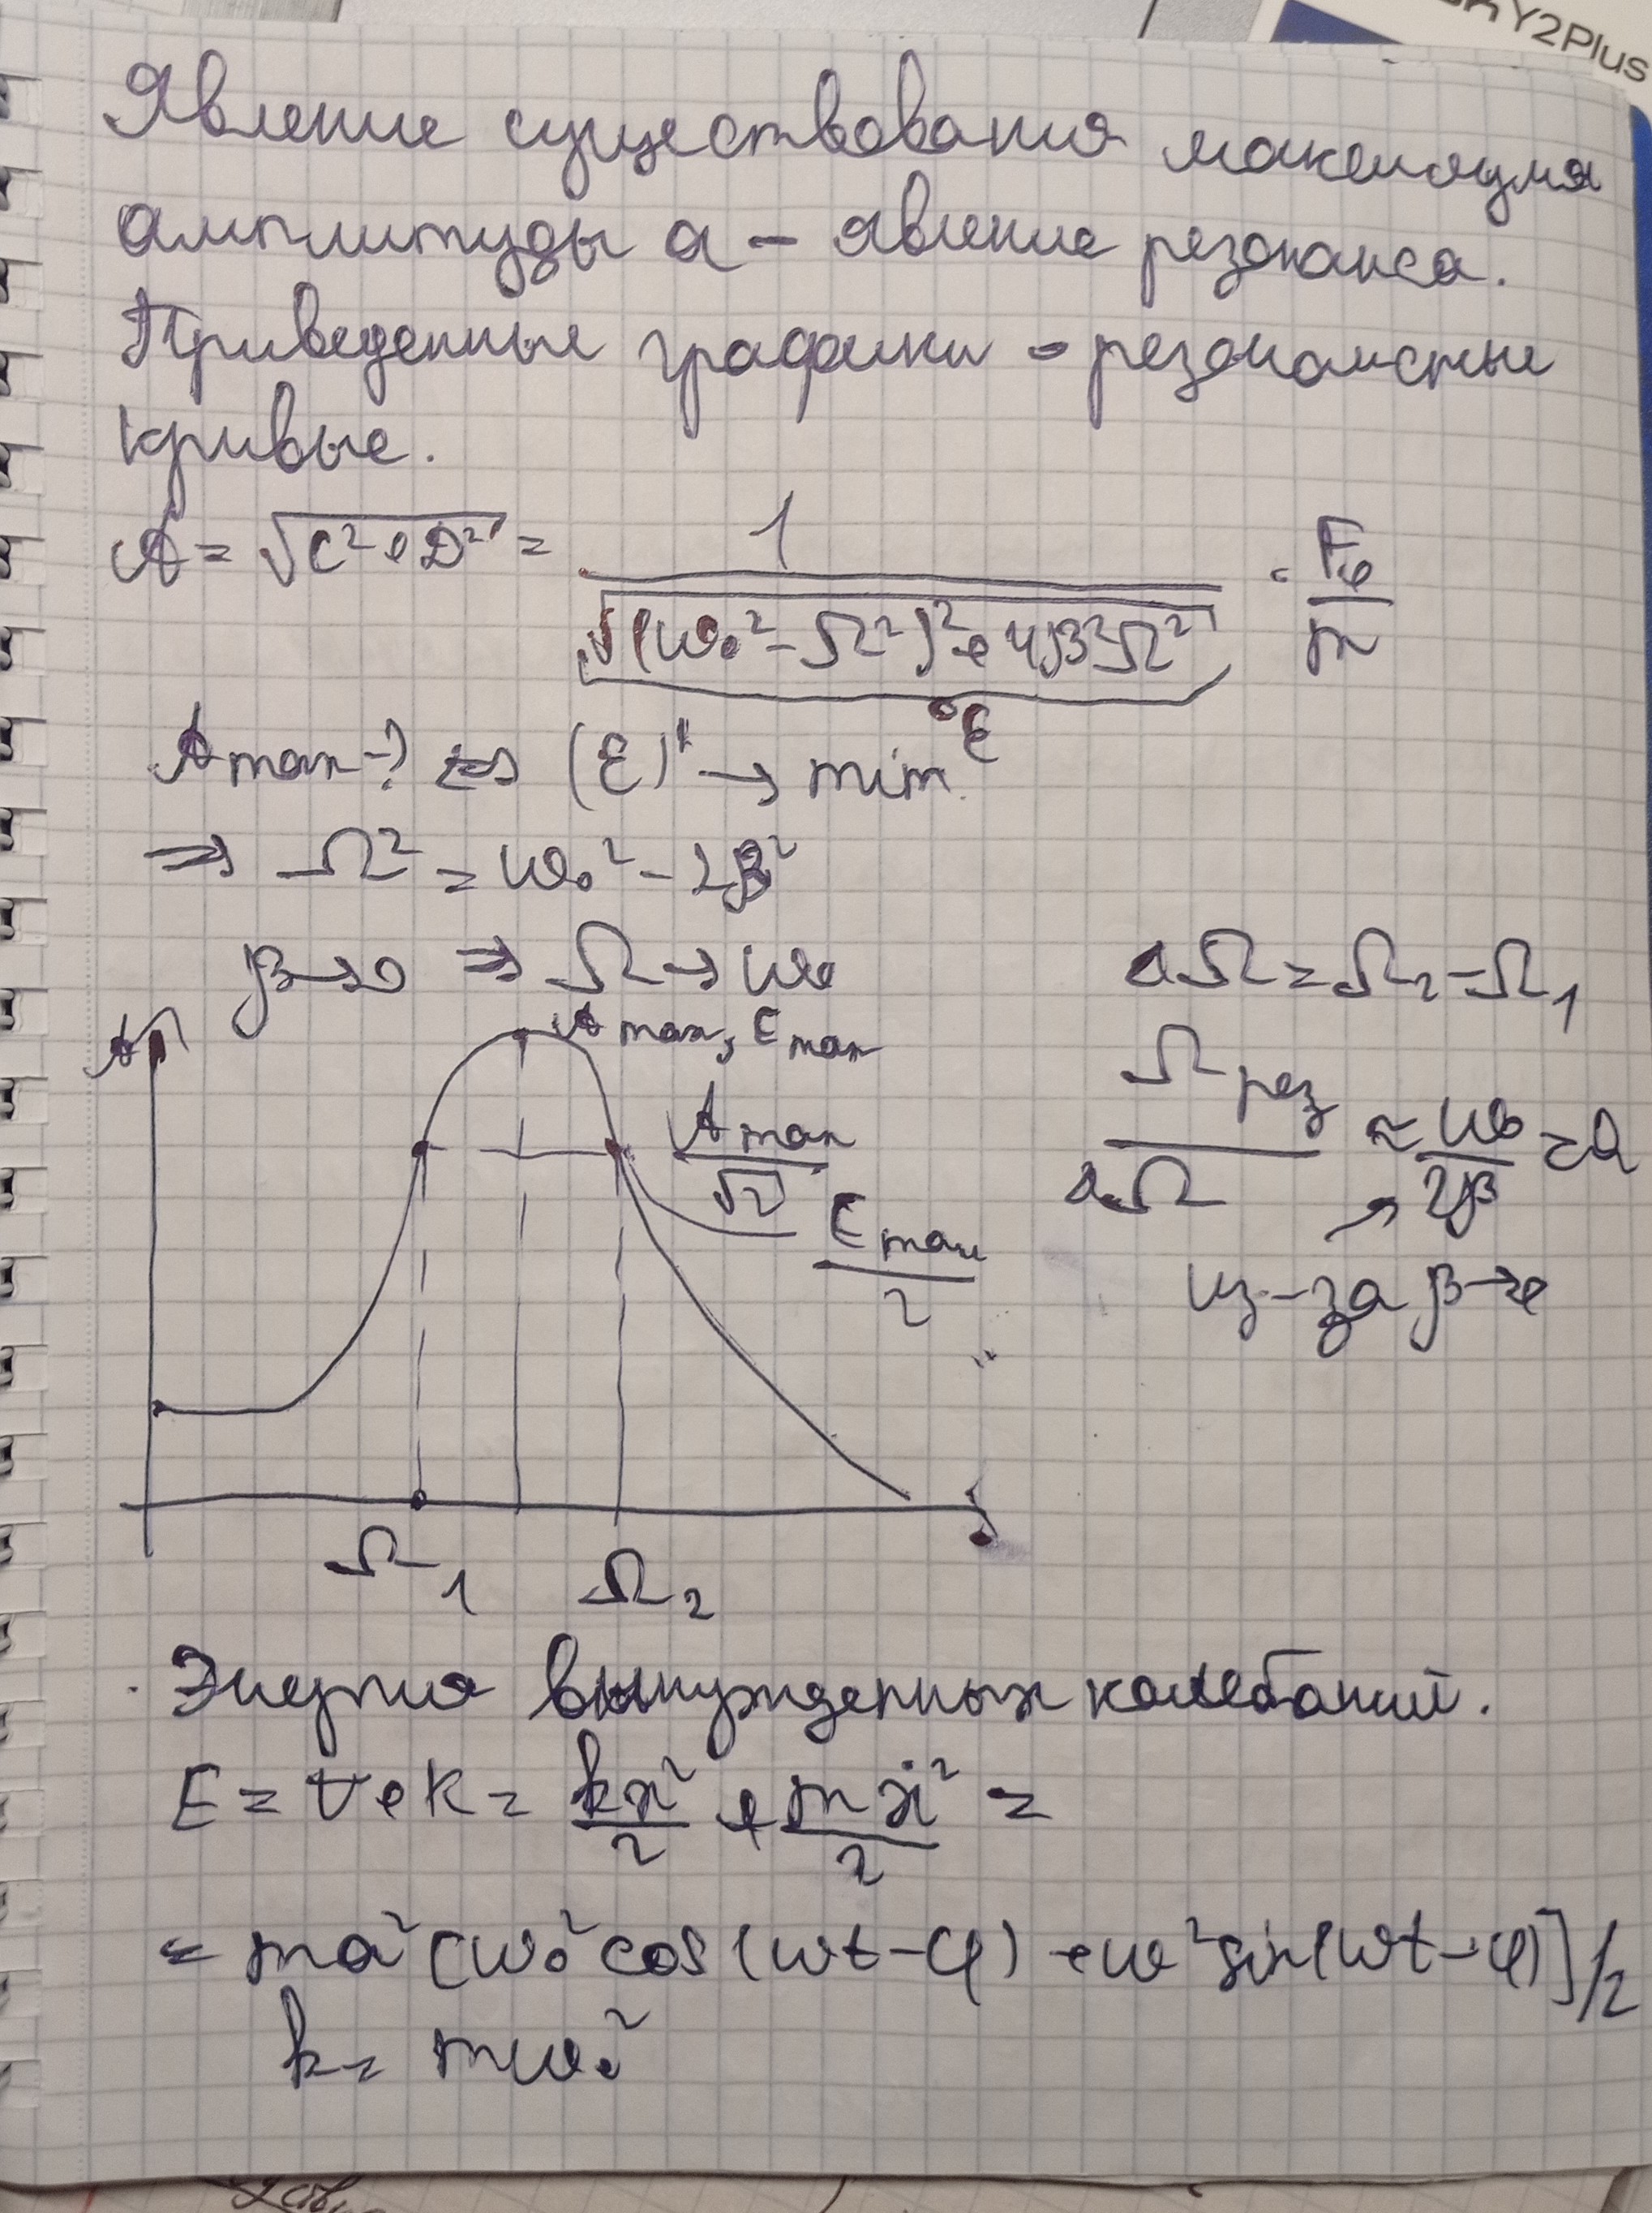 Y2Plus
Явление существования максимума
амплитуды a – явление резонанса.
Приведенные графики – резонансные
кривые.
A = √(C² + D²) = 1 / √((ω₀² - Ω²)² + 4β²Ω²) · F₀/m
ε
A max - ? ⇔ (ε)' → min
⇒ Ω² = ω₀² - 2β²
β → 0 ⇒ Ω → ω₀
ΔΩ = Ω₂ - Ω₁
A
A max, E max
Ω рез / ΔΩ ≈ ω₀ / 2β = Q
A max / √2
E max / 2
из-за β → 0
Ω₁ Ω₂
Энергия вынужденных колебаний.
E = V + K = kx²/2 + mẋ²/2 =
= ma² [ω₀² cos(ωt - φ) + ω² sin(ωt - φ)]/2
k = mω₀²